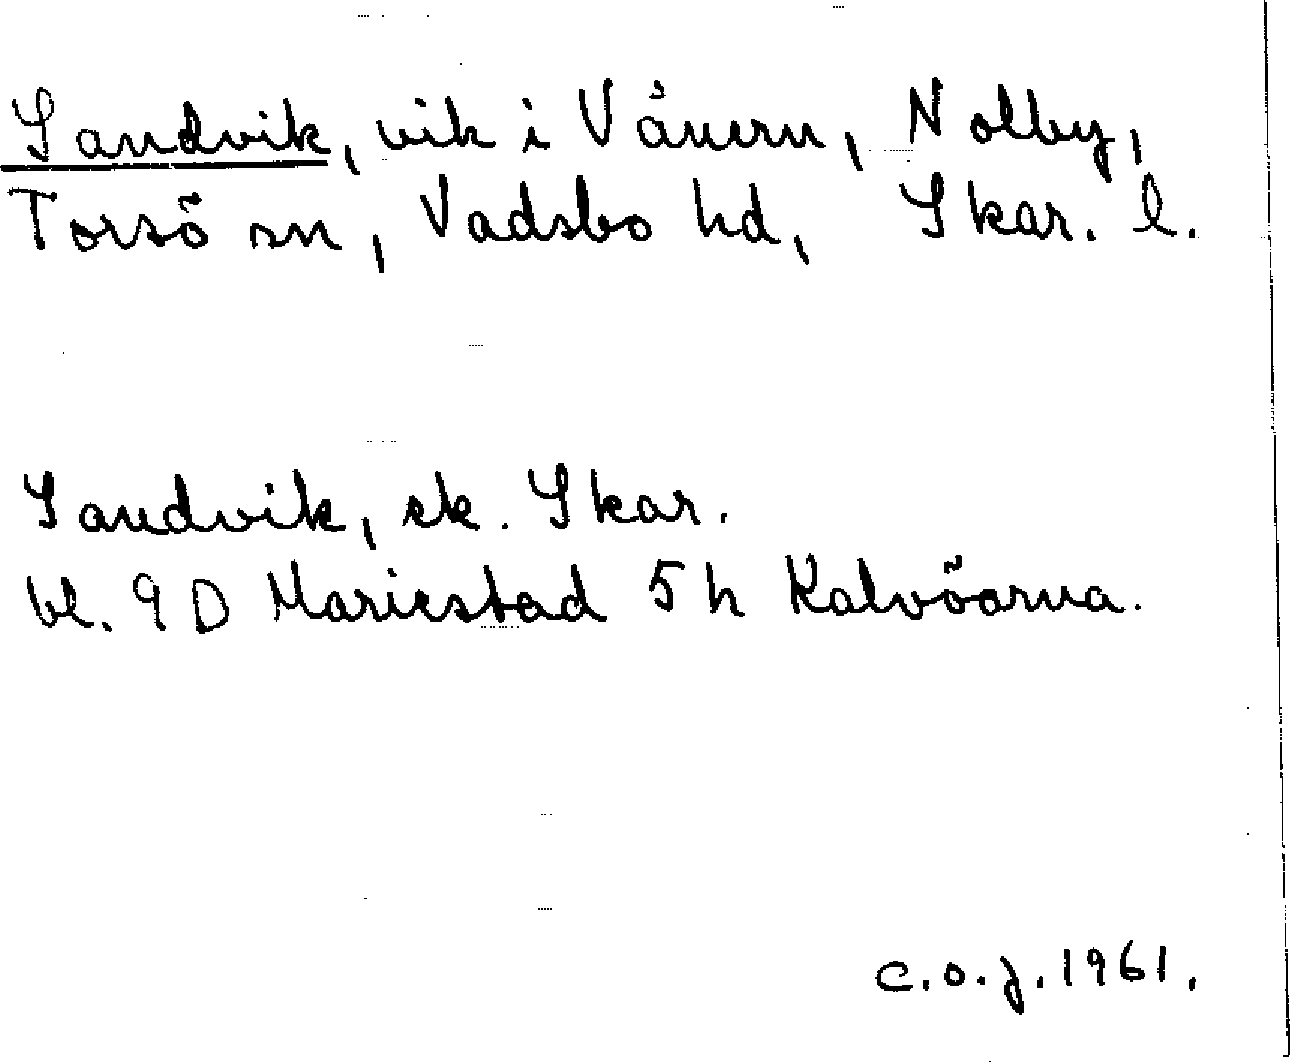 Sandvik, vik i Vänern, Nolby,
Torsö sn, Vadsbo hd, Skar. l.
Sandvik, ek. Skar.
bl. 9D Mariestad 5h Kalvöarna.
C.O.J. 1961.